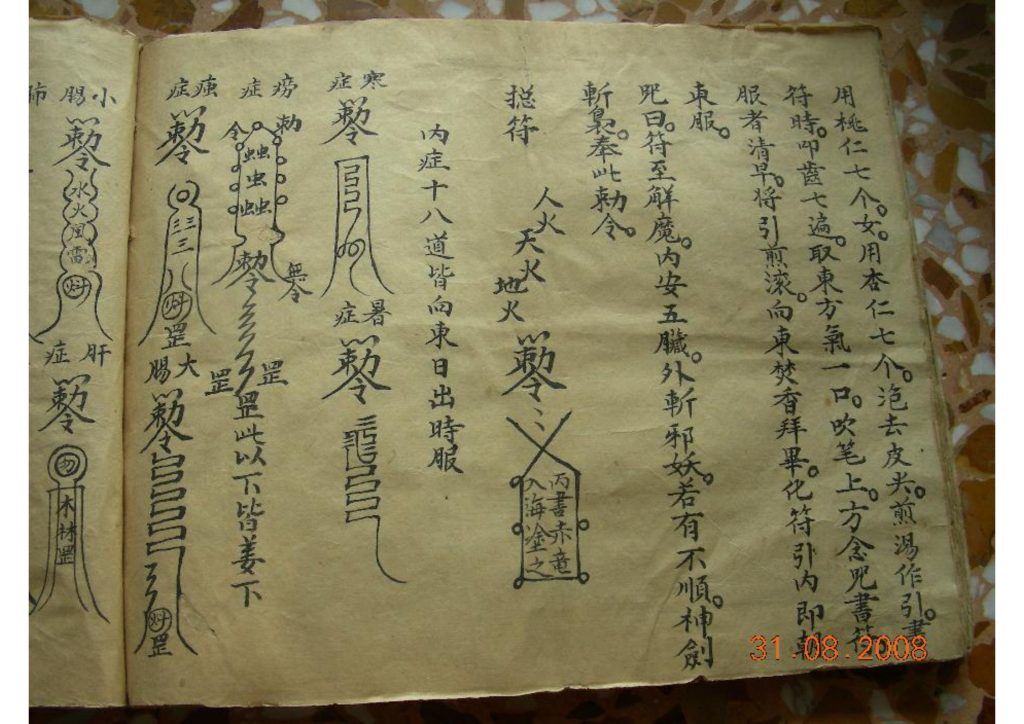 用桃仁七个。女。用杏仁七个。泡去皮尖。煎湯作引。書
符時。叩齒七遍。取東方氣一口。吹笔上。方念咒書符。
服者清早。将引煎滚。向東焚香拜畢。化符引内即朝
東服。
咒曰。符至解魔。内安五臟。外斬邪妖。若有不順。神劍
斬梟。奉此勅令。
捴符
人火
天火
地火
勅令
丙書赤竜
入海塗之
内症十八道皆向東日出時服
寒症
勅令
暑症
勅令
癆症
勅令
蚛虫蚛
勅令
無令
罡罡罡此以下皆姜下
症
勅令
三三三
罡
大腸
勅令
罡
小腸
勅令
水火風雷
肝症
勅令
木林罡
肺
31.08.2008